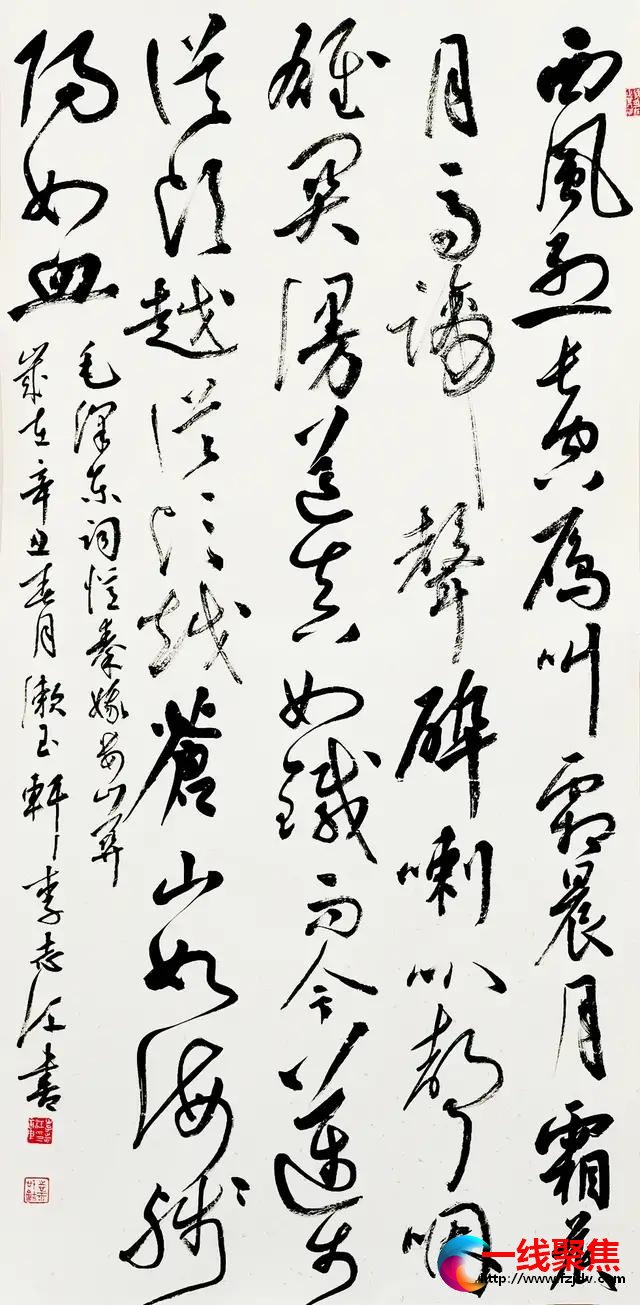 西風烈長空雁叫霜晨月霜晨
月馬蹄聲碎喇叭聲咽
雄關漫道真如鐵而今邁步
從頭越從頭越蒼山如海殘
陽如血
毛澤東詞憶秦娥婁山關
歲在辛丑春月漱玉軒李志書
一线聚焦
http://www.fzjdw.com